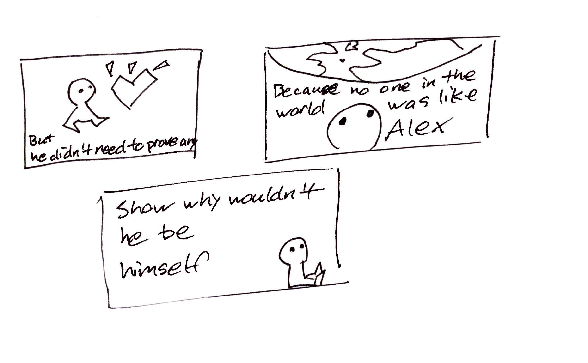 But
he didn't need to prove any
Because no one in the
world was like
Alex
Show why wouldn't
he be
himself